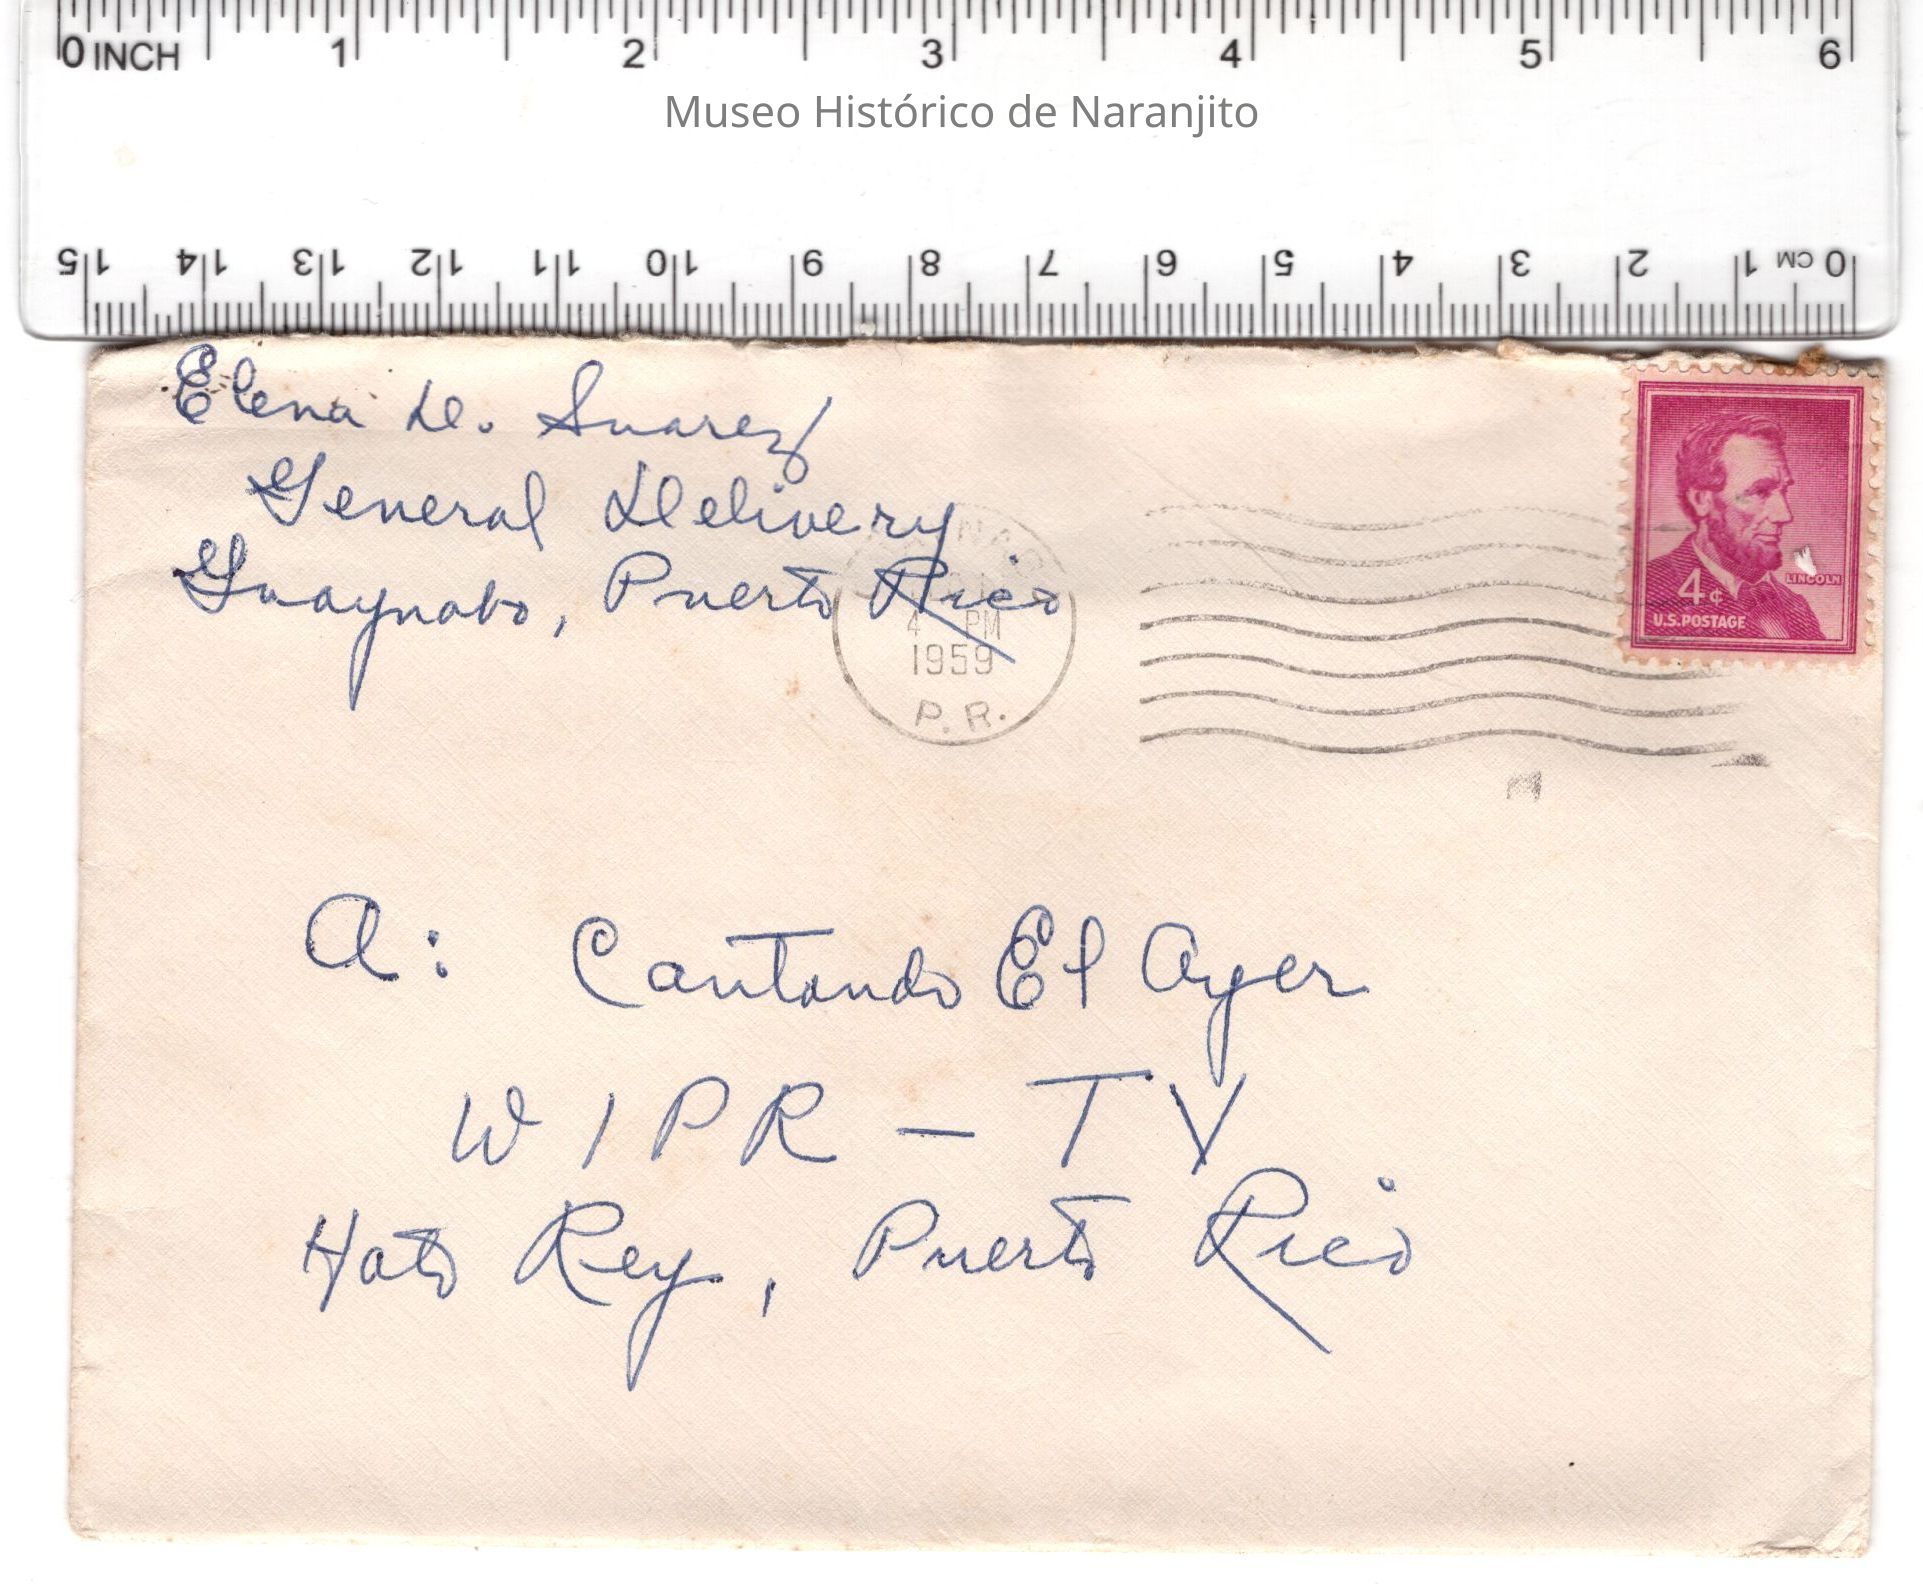 0 INCH 1 2 3 4 5 6
Museo Histórico de Naranjito
15 14 13 12 11 10 9 8 7 6 5 4 3 2 1 CM 0
Elena D. Suarez
General Delivery
Guaynabo, Puerto Rico
4 PM
1959
P.R.
LINCOLN
4¢
U.S.POSTAGE
A: Cantando El Ayer
WIPR - TV
Hato Rey, Puerto Rico